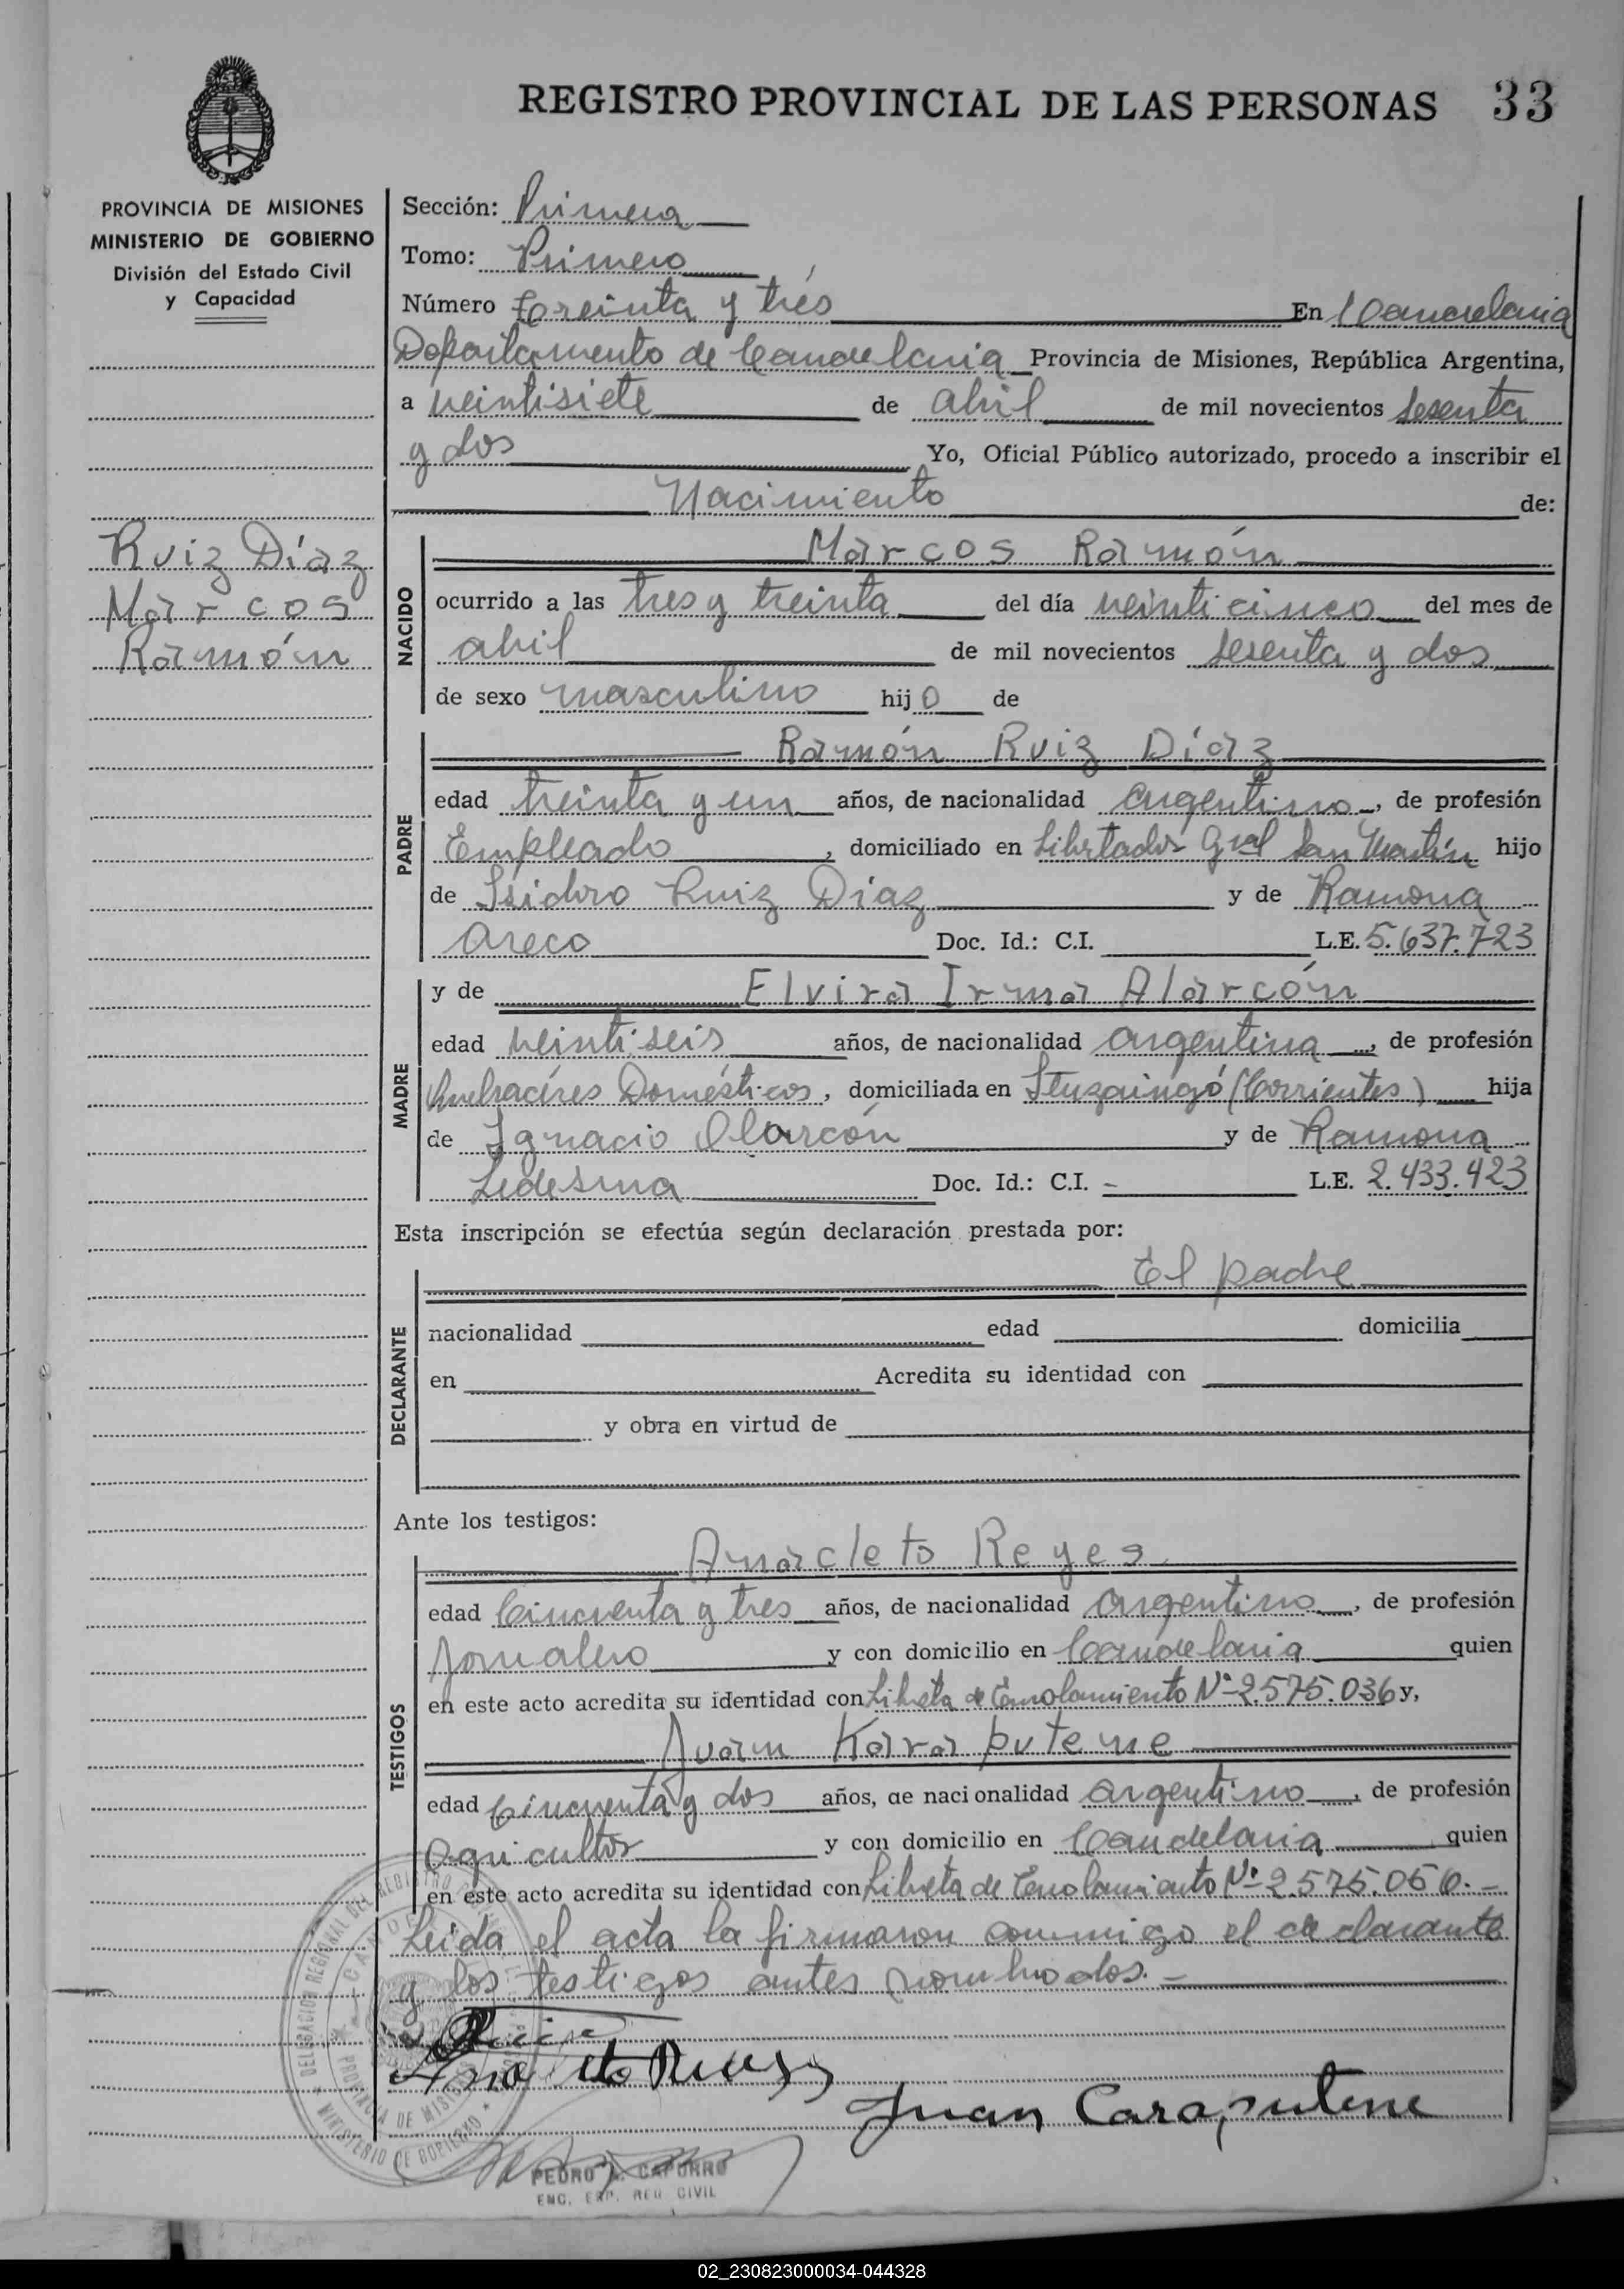 REGISTRO PROVINCIAL DE LAS PERSONAS 33
PROVINCIA DE MISIONES
MINISTERIO DE GOBIERNO
División del Estado Civil
y Capacidad
Ruiz Díaz
Marcos
Ramón
Sección: Primera
Tomo: Primero
Número treinta y tres En Candelaria
Departamento de Candelaria Provincia de Misiones, República Argentina,
a veintisiete de abril de mil novecientos sesenta
y dos Yo, Oficial Público autorizado, procedo a inscribir el
Nacimiento de:
NACIDO
Marcos Ramón
ocurrido a las tres y treinta del día veinticinco del mes de
abril de mil novecientos sesenta y dos
de sexo masculino hijo de
PADRE
Ramón Ruiz Díaz
edad treinta y un años, de nacionalidad argentino, de profesión
Empleado, domiciliado en Libertador Gral San Martín hijo
de Isidro Ruiz Díaz y de Ramona
Areco Doc. Id.: C.I. L.E. 5.637.723
MADRE
y de Elvira Irma Alarcón
edad veintiseis años, de nacionalidad argentina, de profesión
Quehaceres Domésticos, domiciliada en Ituzaingó (Corrientes) hija
de Ignacio Alarcón y de Ramona
Ledesma Doc. Id.: C.I. - L.E. 2.433.423
Esta inscripción se efectúa según declaración prestada por:
DECLARANTE
El padre
nacionalidad edad domicilia
en Acredita su identidad con
y obra en virtud de
Ante los testigos:
TESTIGOS
Anacleto Reyes
edad Cincuenta y tres años, de nacionalidad argentino, de profesión
Jornalero y con domicilio en Candelaria quien
en este acto acredita su identidad con Libreta de Enrolamiento Nº 2.575.036 y,
Juan Karaputene
edad Cincuenta y dos años, de nacionalidad argentino, de profesión
Agricultor y con domicilio en Candelaria quien
en este acto acredita su identidad con Libreta de Enrolamiento Nº 2.575.050.-
Leida el acta la firmaron conmigo el declarante
y los testigos antes nombrados.-
Juan Caraputene
DELEGACION REGIONAL DEL REGISTRO
PROVINCIA DE MISIONES
MINISTERIO DE GOBIERNO
PEDRO CAPURRO
ENC. ESP. REG CIVIL
02_230823000034-044328